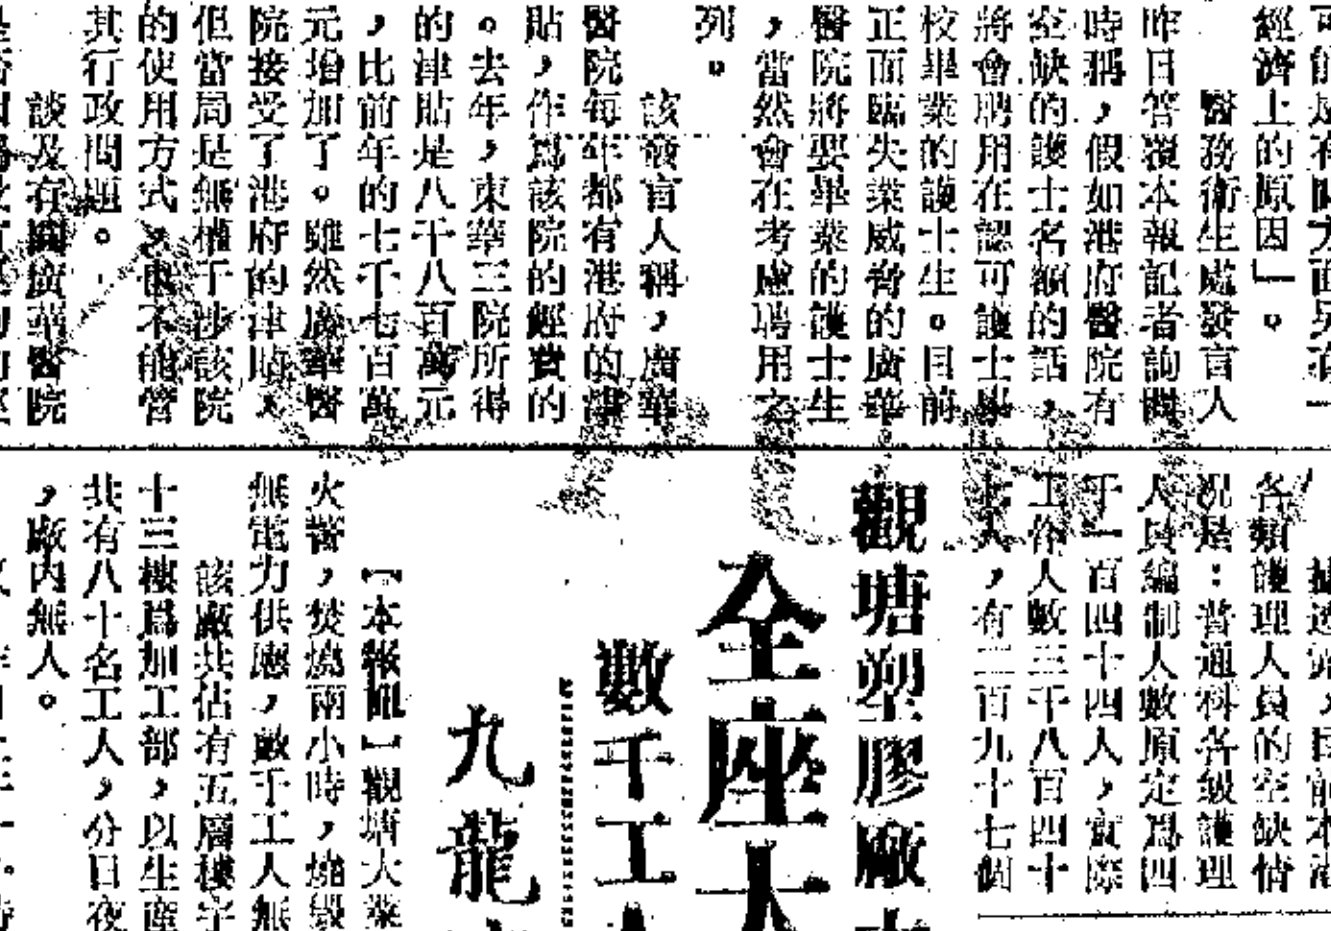 經濟上的原因」。
醫務衛生處發言人
昨日答覆本報記者詢問
時稱，假如港府醫院有
空缺的護士名額的話，
將會聘用在認可護士學
校畢業的護士生。目前
正面臨失業威脅的廣華
醫院將要畢業的護士生
，當然會在考慮聘用之
列。
該發言人稱，廣華
醫院每年都有港府的津
貼，作爲該院的經費的
。去年，東華三院所得
的津貼是八千八百萬元
，比前年的七千七百萬
元增加了。雖然廣華醫
院接受了港府的津貼，
但當局是無權干涉該院
的使用方式，也不能管
其行政問題。
談及有關廣華醫院
各類護理人員的空缺情
况是：普通科各級護理
人員編制人數原定爲四
千一百四十四人，實際
工作人數三千八百四十
七人，有二百九十七個
觀塘塑膠廠
全座大
數千工
九龍
【本報訊】觀塘大業
火警，焚燒兩小時，燒毀
無電力供應，數千工人無
該廠共佔有五層樓宇
十三樓爲加工部，以生產
共有八十名工人，分日夜
，廠內無人。